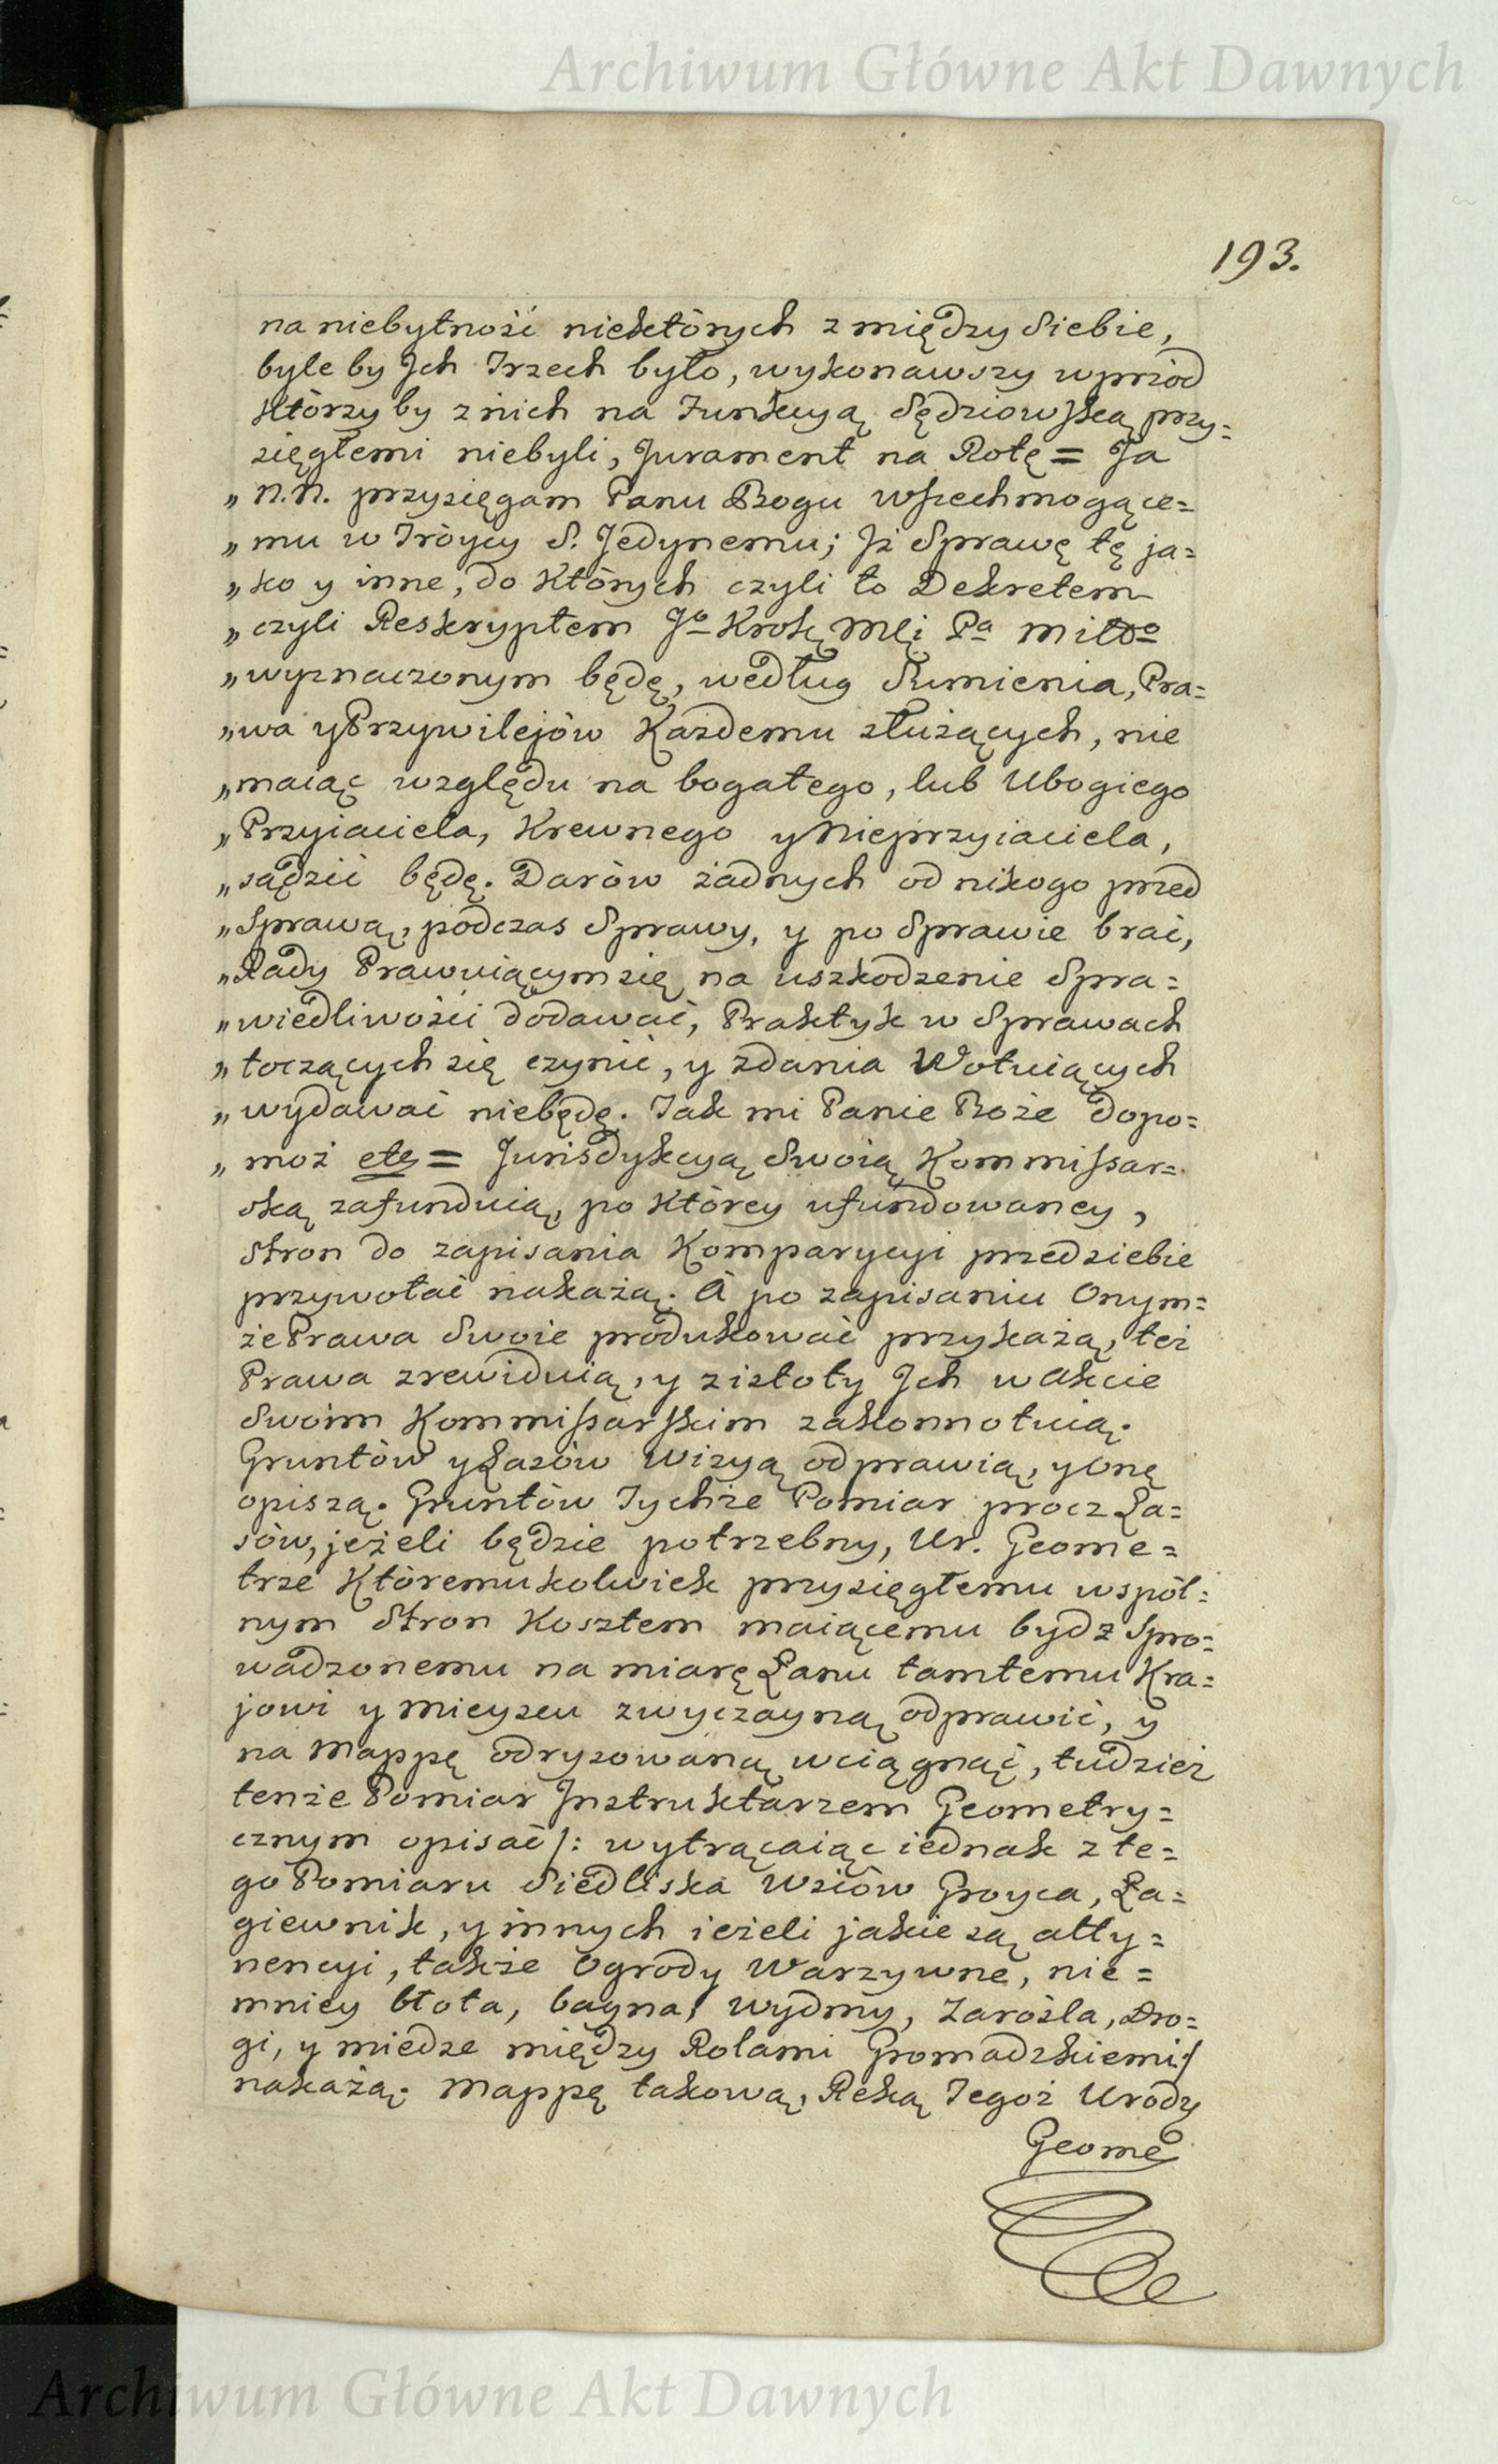 Archiwum Główne Akt Dawnych
193.
na niebytność niektórych z między Siebie,
byle by Jch Trzech było, wykonawszy wprzód
którzy by z nich na Funkcyą Sędziowską przy=
sięgłemi niebyli, Jurament na Rotę = Ja
„ N.N. przysięgam Panu Bogu Wszechmogące=
„ mu w Tróycy S. Jedynemu; Jż Sprawę tę ja=
„ ko y inne, do Których czyli to Dekretem
„ czyli Reskryptem Jº Krolę Mći Pª Miłº
„ wyznaczonym będę, według Sumienia, Pra=
„ wa y Przywilejów Każdemu służących, nie
„ maiąc względu na bogatego, lub Ubogiego
„ Przyiaciela, Krewnego y Nieprzyiaciela,
„ sądzić będę. Darów żadnych od nikogo przed
„ Sprawą, podczas Sprawy, y po Sprawie brać,
„ Rady Prawuiącym się na uszkodzenie Spra=
„ wiedliwości dodawać, Praktyk w Sprawach
„ toczących się czynić, y zdania Wotuiących
„ wydawać niebędę. Tak mi Panie Boże dopo=
„ moż etc = Jurisdykcyą Swoią Kommissar=
ską zafunduią, po Którey ufundowaney,
Stron do zapisania Komparycyi przed siebie
przywołać nakażą. A po zapisaniu Onym=
że Prawa Swoie produkować przykażą, też
Prawa zrewiduią, y z istoty Jch w Akcie
Swoim Kommissarskim zakonnotuią.
Gruntów y Lasów Wizyą odprawią, y onę
opiszą. Gruntów Tychże Pomiar procz La=
sów, jeżeli będzie potrzebny, Ur. Geome=
trze Któremukolwiek przysięgłemu wspól=
nym Stron Kosztem maiącemu bydz Spro=
wadzonemu na miarę Łanu tamtemu Kra=
jowi y Mieyscu zwyczayną odprawić, y
na Mappę odrysowaną wciągnąć, tudzież
tenże Pomiar Jnstruktarzem Geometry=
cznym opisać /: wytrącaiąc iednak z te=
go Pomiaru Siedliska Wsiów Groyca, Ła=
giewnik, y innych ieżeli jakie są atty=
nencyi, także Ogrody Warzywne, nie=
mniey błota, bagna, wydmy, Zarośla, Dro=
gi, y miedze między Rolami Gromadzkiemi :/
nakażą. Mappę takową, Ręką Tegoż Urody
Geome
Archiwum Główne Akt Dawnych